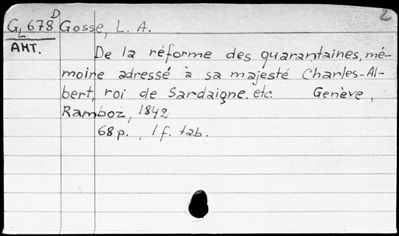 2
GL 678D Gosse, L. A.
AHT.
De la réforme des quarantaines, mé-
moire adressé à sa majesté Charles-Al-
bert, roi de Sardaigne. etc. Genève,
Ramboz, 1842
68 p., 1 f. tab.